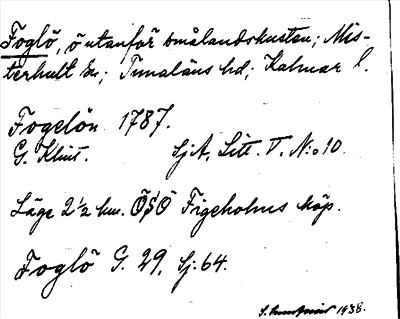 Foglö, ö utanför smålandskusten; Mis-
terhult sn; Tunaläns hd; Kalmar l.
Fogelön 1787.
G. Klint. SjA, Litt. V. N:o 10.
Läge 2 1/2 km. ÖSÖ Figeholms köp.
Foglö G. 29. Sj. 64.
1938.